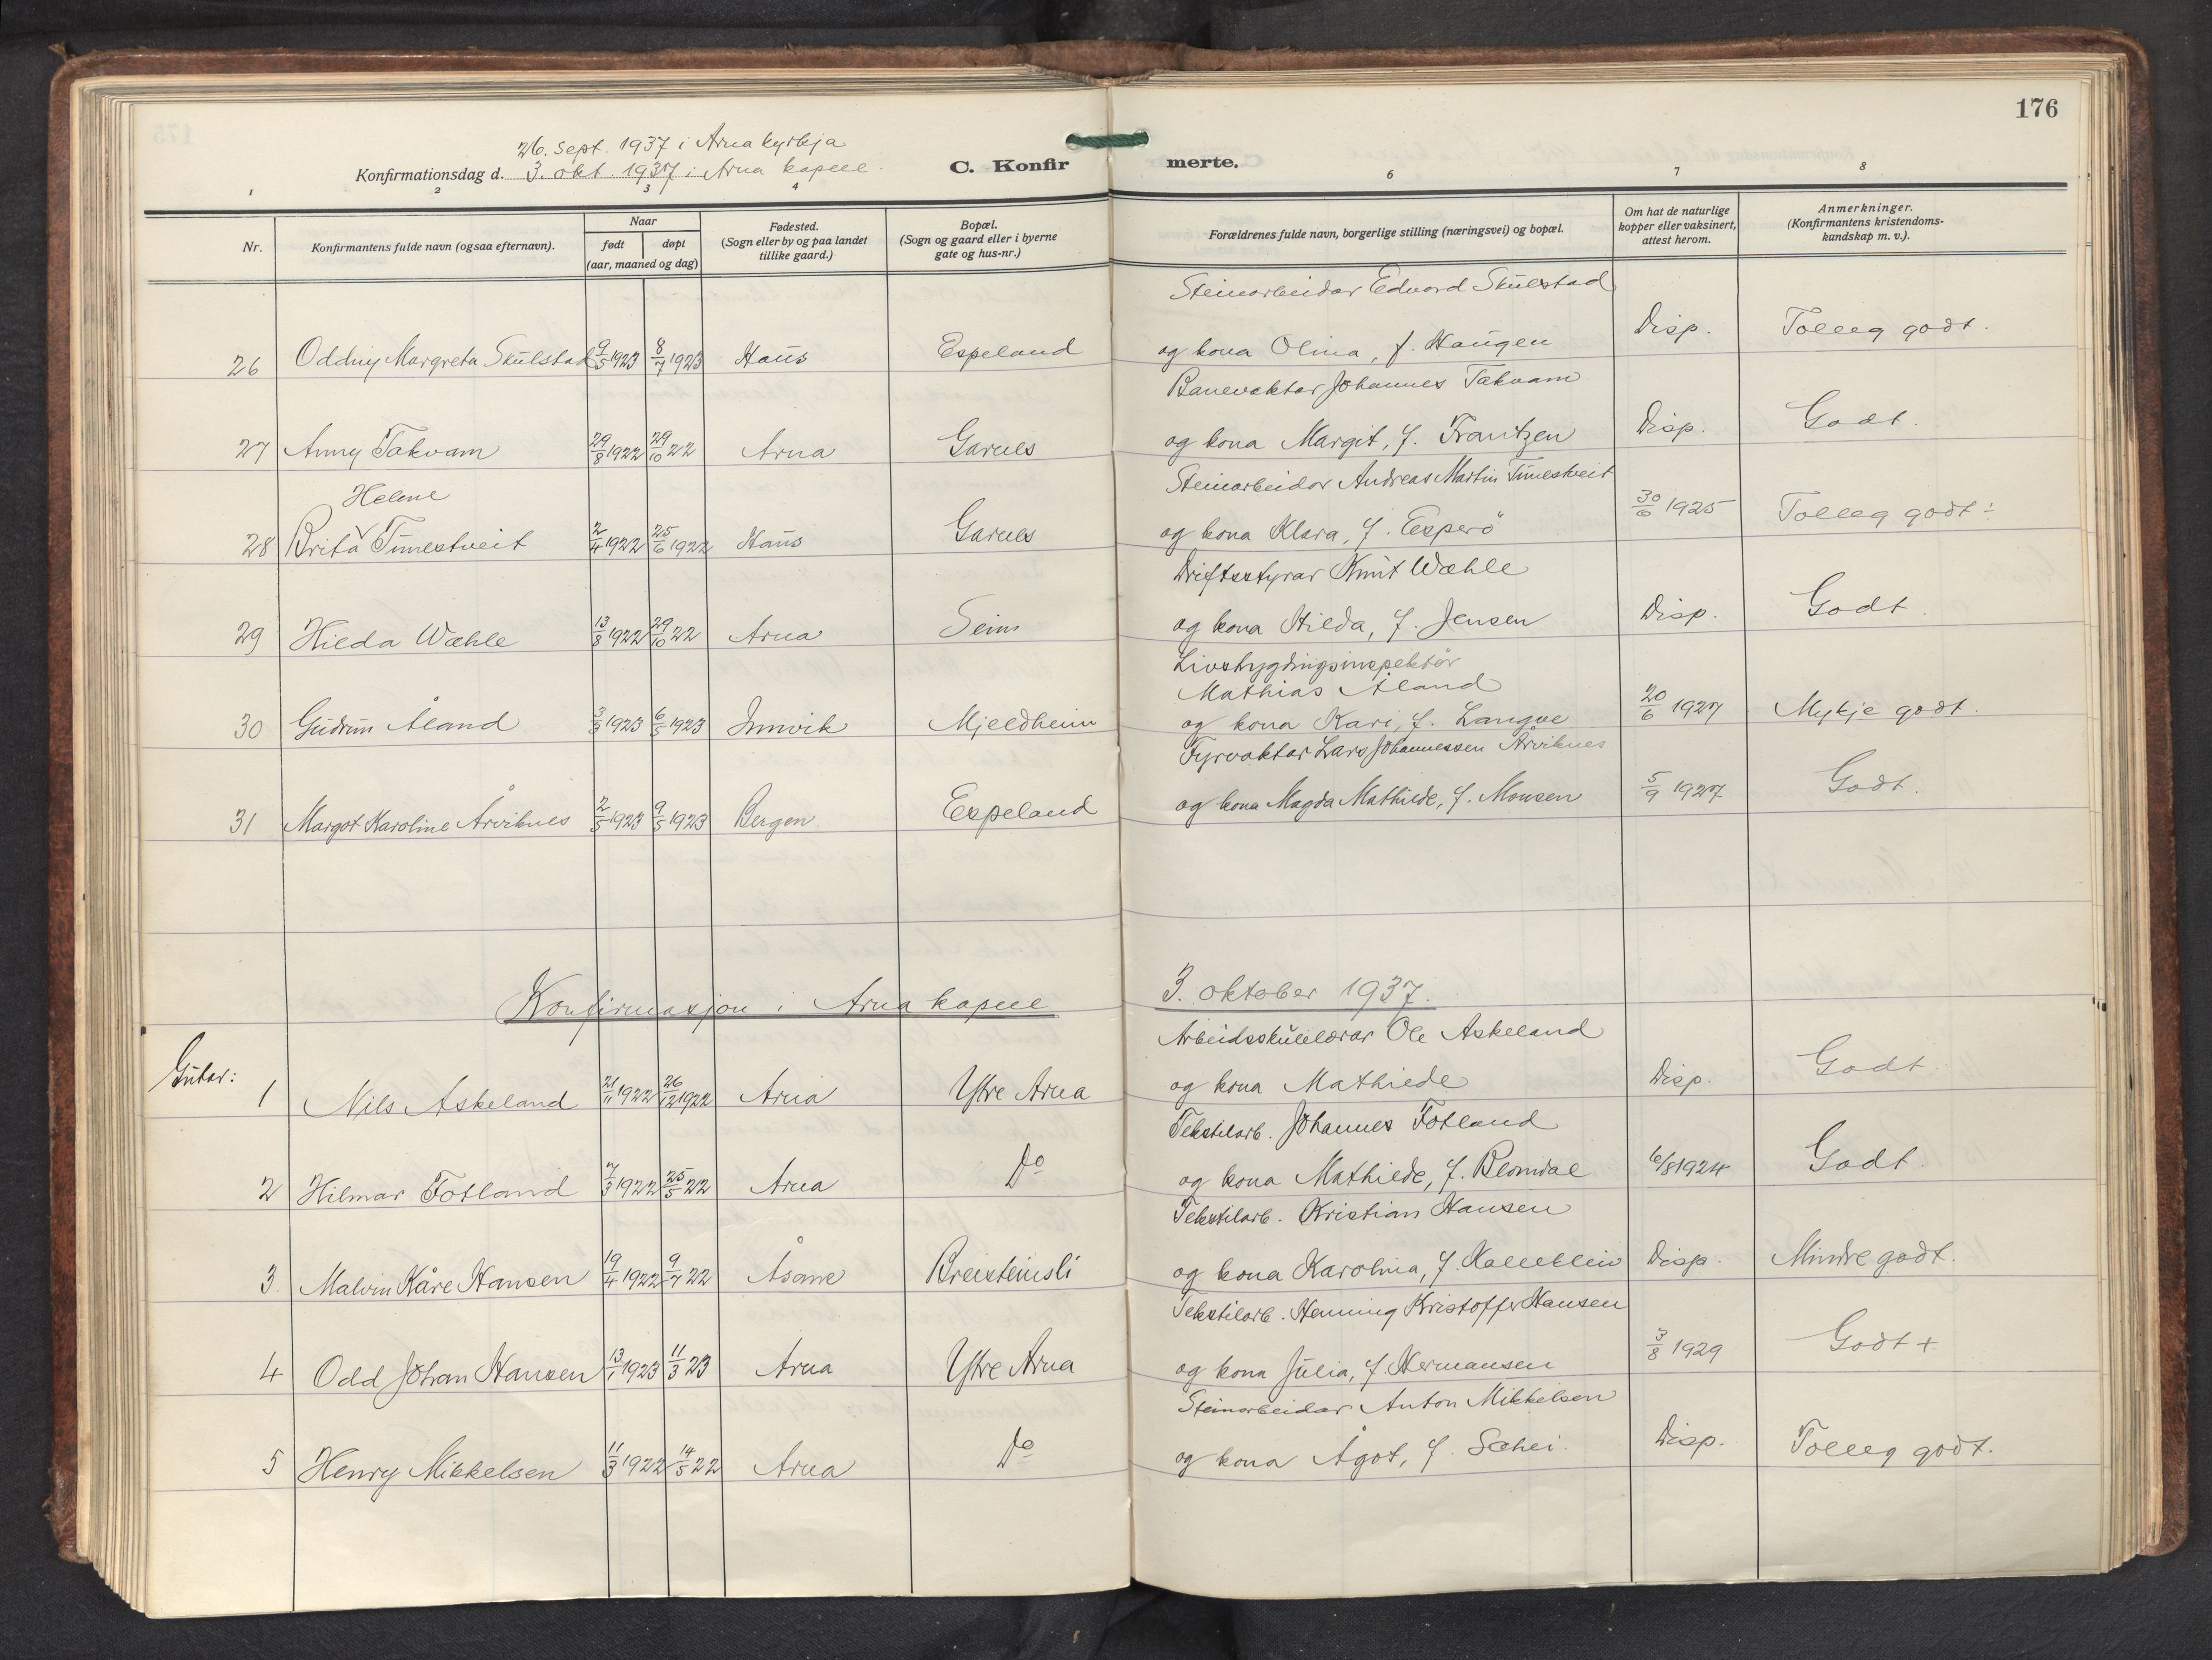 176
26. sept. 1937 i Arna kyrkja
Konfirmationsdag d. 3. okt. 1937 i Arna kapell.
C. Konfirmerte.
1 2 3 4 6 7 8
Nr. Konfirmantens fulde navn (ogsaa efternavn). Naar født døpt (aar, maaned og dag) Fødested. (Sogn eller by og paa landet tillike gaard.) Bopæl. (Sogn og gaard eller i byerne gate og hus-nr.) Forældrenes fulde navn, borgerlige stilling (næringsvei) og bopæl. Om hat de naturlige kopper eller vaksinert, attest herom. Anmerkninger. (Konfirmantens kristendomskundskap m. v.).
Steinarbeidar Edvard Skulstad
26 Oddny Margreta Skulstad 9/5 1923 8/7 1923 Haus Espeland og kona Olina, f. Haugen Disp. Tolleg godt.
Banevaktar Johannes Takvam
27 Anny Takvam 29/8 1922 29/10 22 Arna Garnes og kona Margit, f. Frantzen Disp. Godt.
Helene
Steinarbeidar Andreas Martin Tunestveit
28 Brita Tunestveit 2/4 1922 25/6 1922 Haus Garnes og kona Klara, f. Esperö 30/6 1925 Tolleg godt ÷
Driftsstyrar Knut Wæhle
29 Hilda Wæhle 13/8 1922 29/10 22 Arna Seim og kona Hilda, f. Jensen Disp. Godt.
Livstrygdingsinspektör
Mathias Åland
30 Gudrun Åland 3/3 1923 6/5 1923 Innvik Mjeldheim og kona Kari, f. Langve 20/6 1927 Mykje godt.
Fyrvaktar Lars Johannessen Årviknes
31 Margot Karoline Årviknes 2/5 1923 9/5 1923 Bergen Espeland og kona Magda Mathilde, f. Monsen 5/9 1927 Godt.
Konfirmasjon i Arna kapell 3. oktober 1937.
Gutar:
Arbeidsskulelærar Ole Askeland
1 Nils Askeland 21/11 1922 26/12 1922 Arna Ytre Arna og kona Mathilde Disp. Godt.
Tekstilarb. Johannes Fotland
2 Hilmar Fotland 7/3 1922 25/5 22 Arna Do og kona Mathilde, f. Blomdal 6/8 1924 Godt.
Tekstilarb. Kristian Hansen
3. Malvin Kåre Hansen 19/4 1922 9/7 22 Åsane Breisteinsli og kona Karolina, f. Kalleklein Disp. Mindre godt.
Tekstilarb. Henning Kristoffer Hansen
4 Odd Johan Hansen 13/1 1923 11/3 23 Arna Ytre Arna og kona Julia, f. Hermansen 3/8 1929 Godt +
Steinarbeidar Anton Mikkelsen
5 Henry Mikkelsen 11/3 1922 14/5 22 Arna Do og kona Ågot, f. Sæhei. Disp. Tolleg godt.